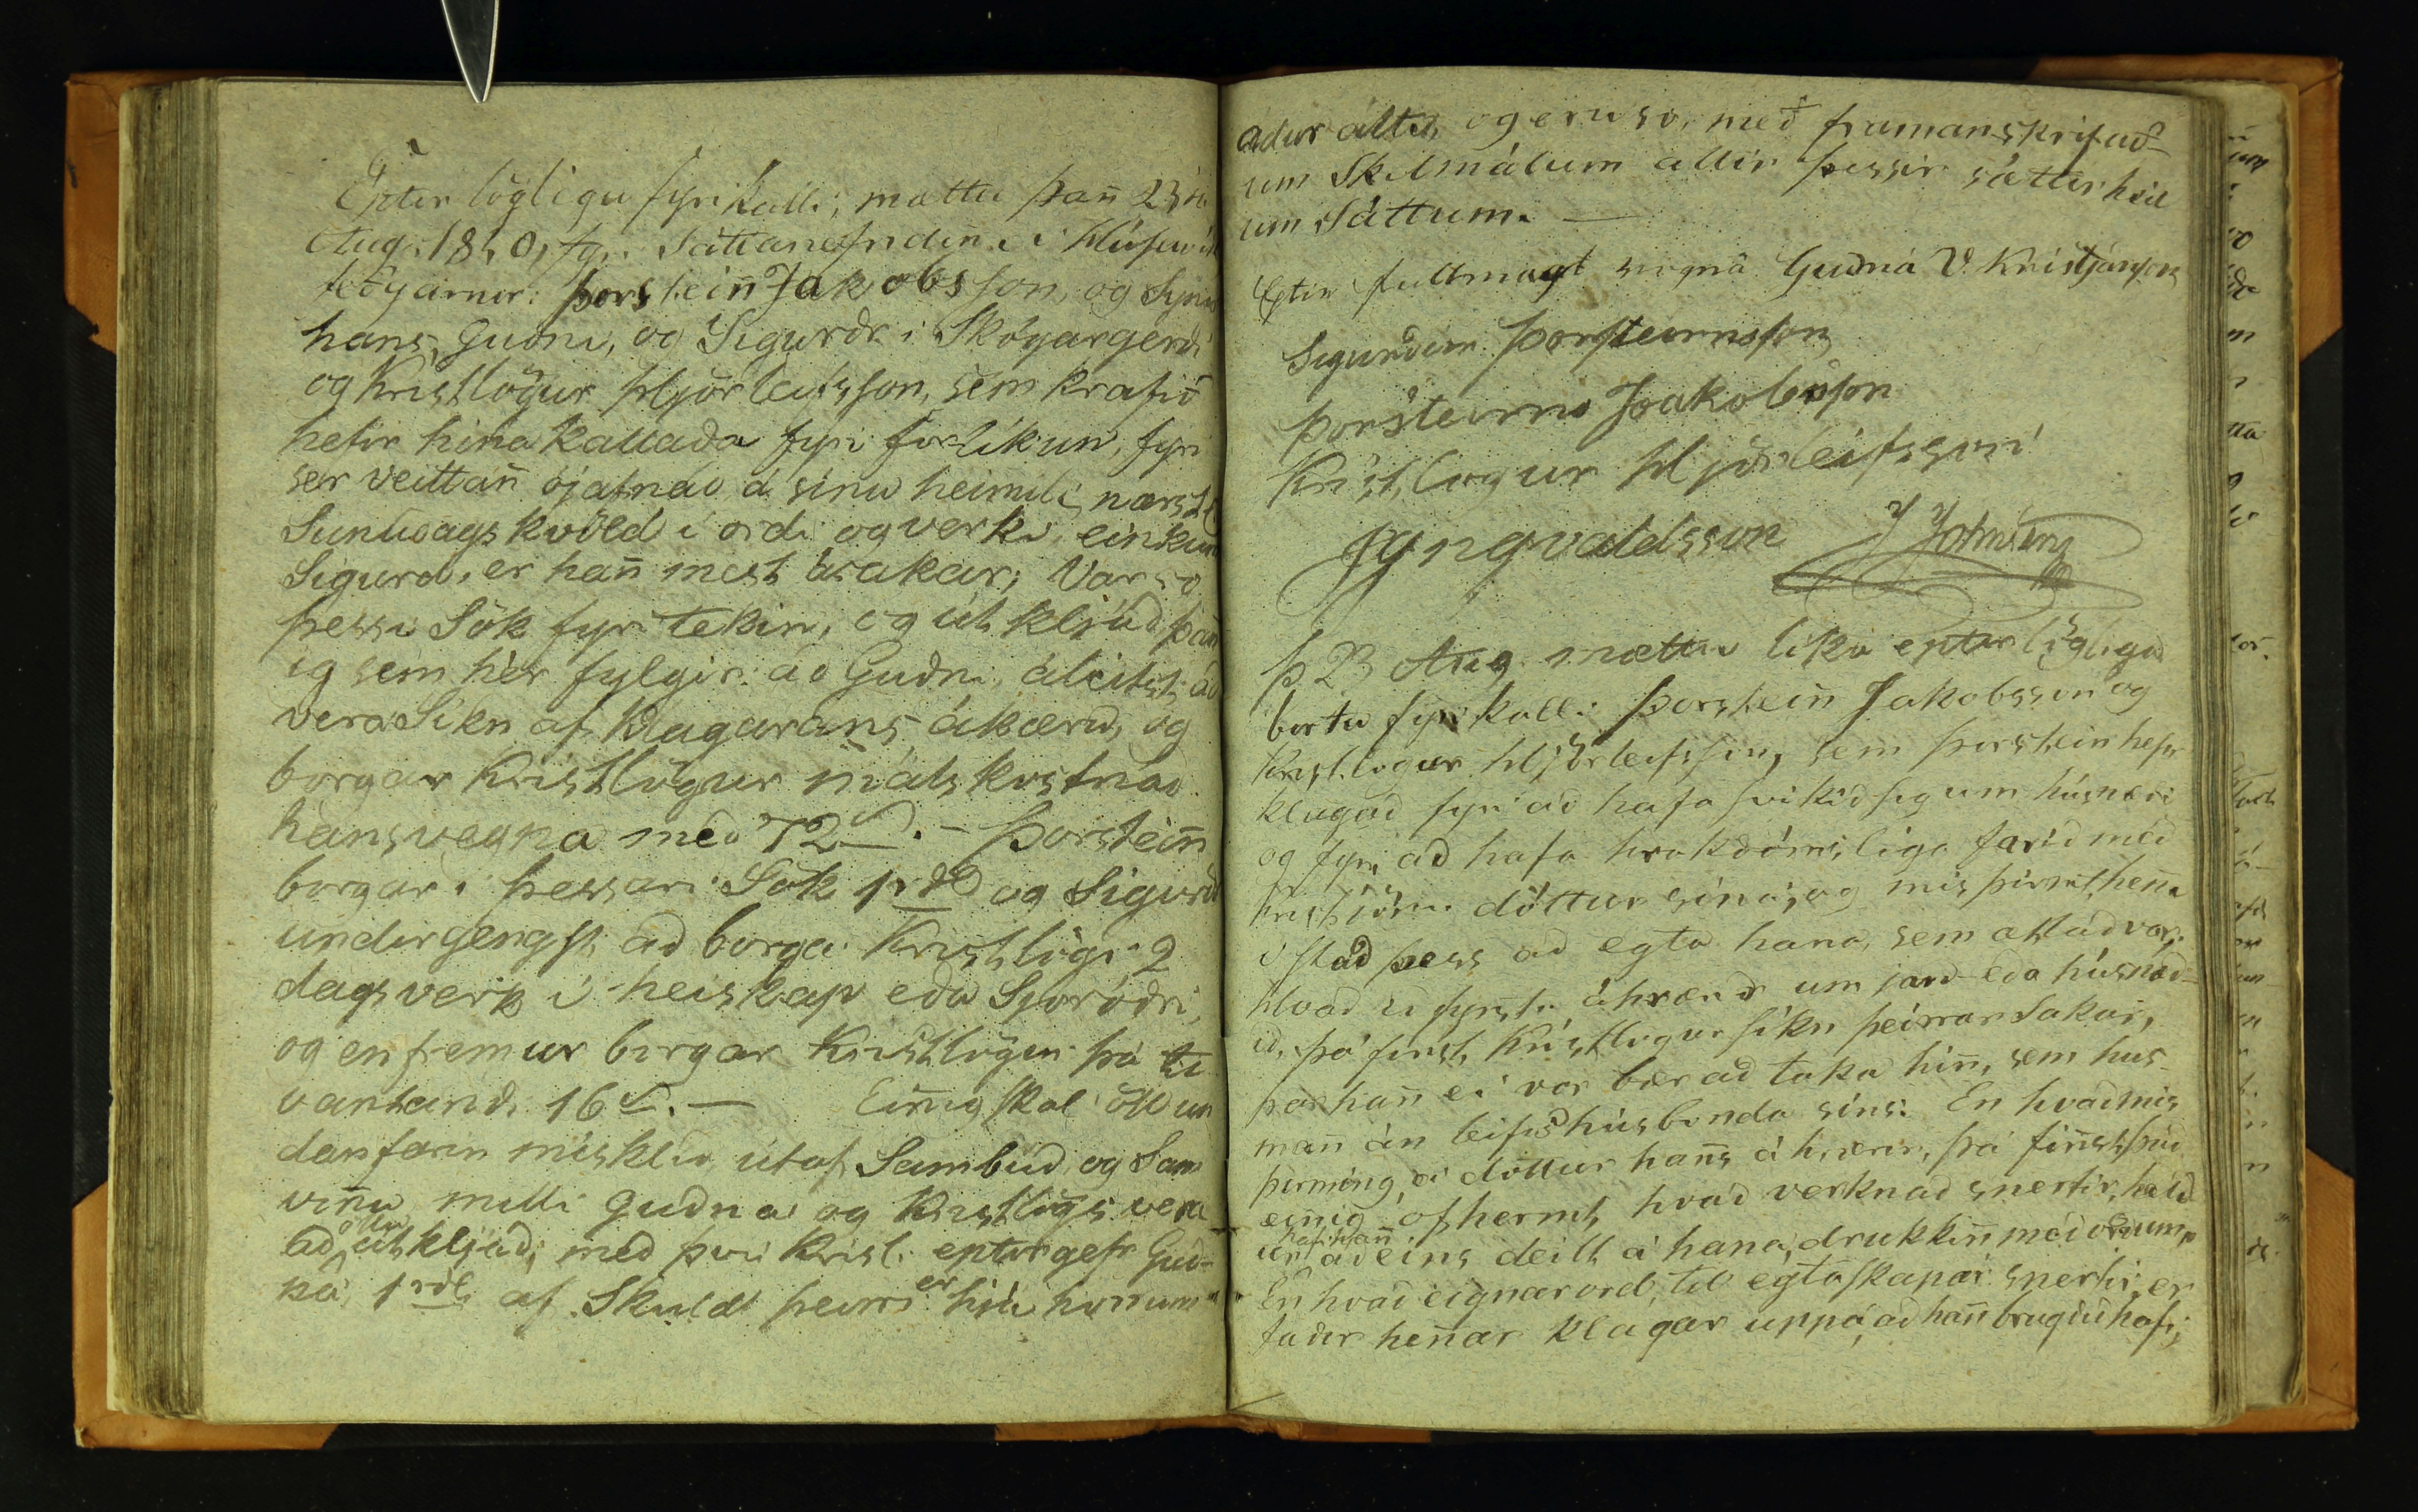 Epter lögligu fyrikalli, mættu þan̄ 23ia
Aug. 1810, fyri Sáttanefndin̄i í Húsavík
feðgarner: Þorstein̄ Jakobsson, og Syner
hans, Guðni, og Sigurðr í Skógargerði
og Kristlögur Hjörleifsson, sem krafið
hefir hina kallaða fyri forlíkun, fyri
ser veittan̄ ójafnað á sínu heimili, næst l.
Sunudagskvöld í orði og verki, einkum
Sigurð, er han̄ mest ásakar; Var so
þessi Sök fyri tekin, og útkljáð þan̄
ig sem hér fylgir: að Guðni, áleitst að
vera Sikn af Klagarans ákæru, og
borgar Kristlögur málskostnað
hans vegna með 72 s. - Þorstein̄
borgar í þessari Sök 1 rd og Sigurðr
undirgengst að borga Kristlögi 2
dagsverk í heiskap eða Sjoróðri,
og enfremur borgar Kristlögur þá ti
vantandi 16 s. — Ein̄ig skal öll un
danfarin misklíð útaf Sambúð og Sam
vin̄u milli Guðna og Kristlögs vera
að öllu útkljáð, með því Kristl. epter gefr Guð-
na 1 rdl af Skuld þeirri er hjá honum
aður átti, og eru so, með framanskrifuð-
um Skilmálum allir þessir sátter heil
um Sáttum. —
Eptir fullmagt vegna Guðna V. Kristjánsson
Sigurður Þorsteirnsson
Þorsteirn Jaakobsson
Kristlogur Hjörleifsson
J Yngvaldsson J Johnsen
Þ 23 Aug. mættu líka epter lögligu
birtu fyrikalli Þorstein̄ Jakobsson og
Kristlögur Hjörleifsson, sem Þorstein hefr
klagað fyri að hafa svikið sig um húsnæði
og fyri að hafa hrakdómsliga farið með
Kristjönu dóttur sína, og misþirmt hen̄i
í stað þess að egta hana, sem altað var;
Hvað ið fyrsta áhrærir um jarð- eða húsnæð-
ið, þá finst Kristlogur sikn þeirrar Sakar,
þar han̄ ei var bær að taka hin̄, sem hús-
man̄ án leifis húsbonda síns: En hvað mis
þirming, á dóttur han̄s áhrærir, þá fin̄st það
ein̄ig ofhermt, hvað verknað snertir, held
ur hafi han̄ aðeins deilt á hana, drukkin̄ með orðum,
En hvað eignarorð, til egtaskapar snertir, er
faðir hen̄ar klagar uppá, að han̄ brugðið hafi;